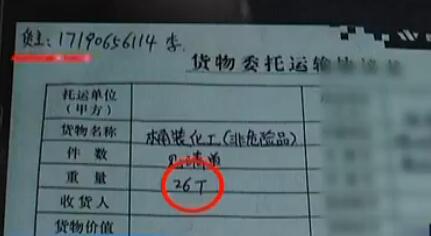 货主:17190656114 李.
货物委托运输
托运单位
(甲方)
货物名称 桶装化工(非危险品)
件数 见清单
重量 26T
收货人
货物价值